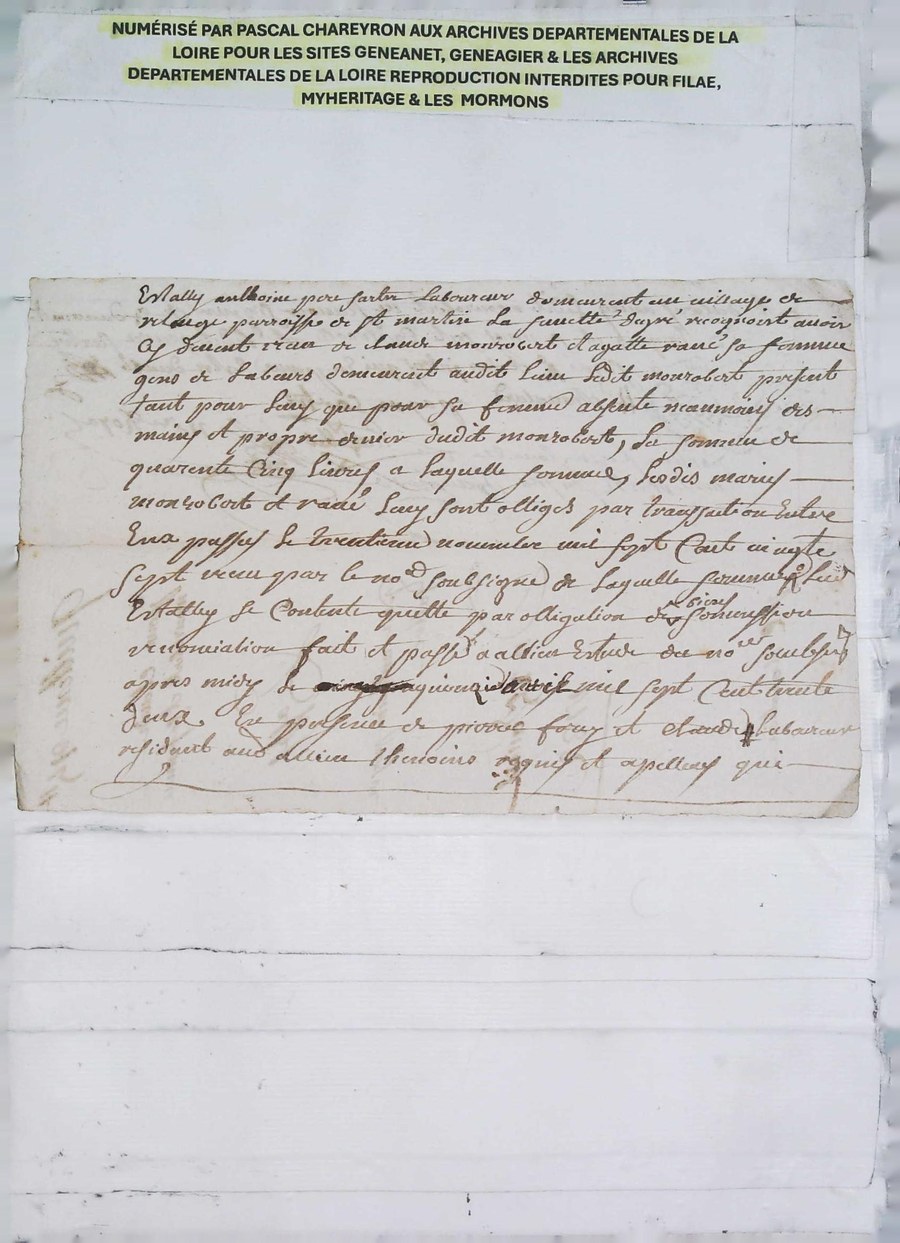 NUMÉRISÉ PAR PASCAL CHAREYRON AUX ARCHIVES DEPARTEMENTALES DE LA
LOIRE POUR LES SITES GENEANET, GENEAGIER & LES ARCHIVES
DEPARTEMENTALES DE LA LOIRE REPRODUCTION INTERDITES POUR FILAE,
MYHERITAGE & LES MORMONS
Estably anthoine laboureur demeurant au village de
parroisse de st martin la sauveté de gré recognoist avoir
de claude monrobert et agatte sa femme
gens de labeurs demeurant audit lieu ledit monrobert présent
tant pour luy que pour sa femme absente neanmoins des
mains et propre denier dudit monrobert, la somme de
quarente cinq livres a laquelle somme, lesdis mariés
monrobert et luy sont obligés par transaction entre
eux passés le trentieme novembre mil sept cent vingte
sept receu par le no.re soubsigné de laquelle somme led
Estably se contente quitte par obligation de biens soumission
renonciation fait et passé a allieu estude du no.re soubsigné
apres midy le avril mil sept cent trente
deux En presence de pierre et claude laboureur
residant aud allieu themoins requis et apellés qui